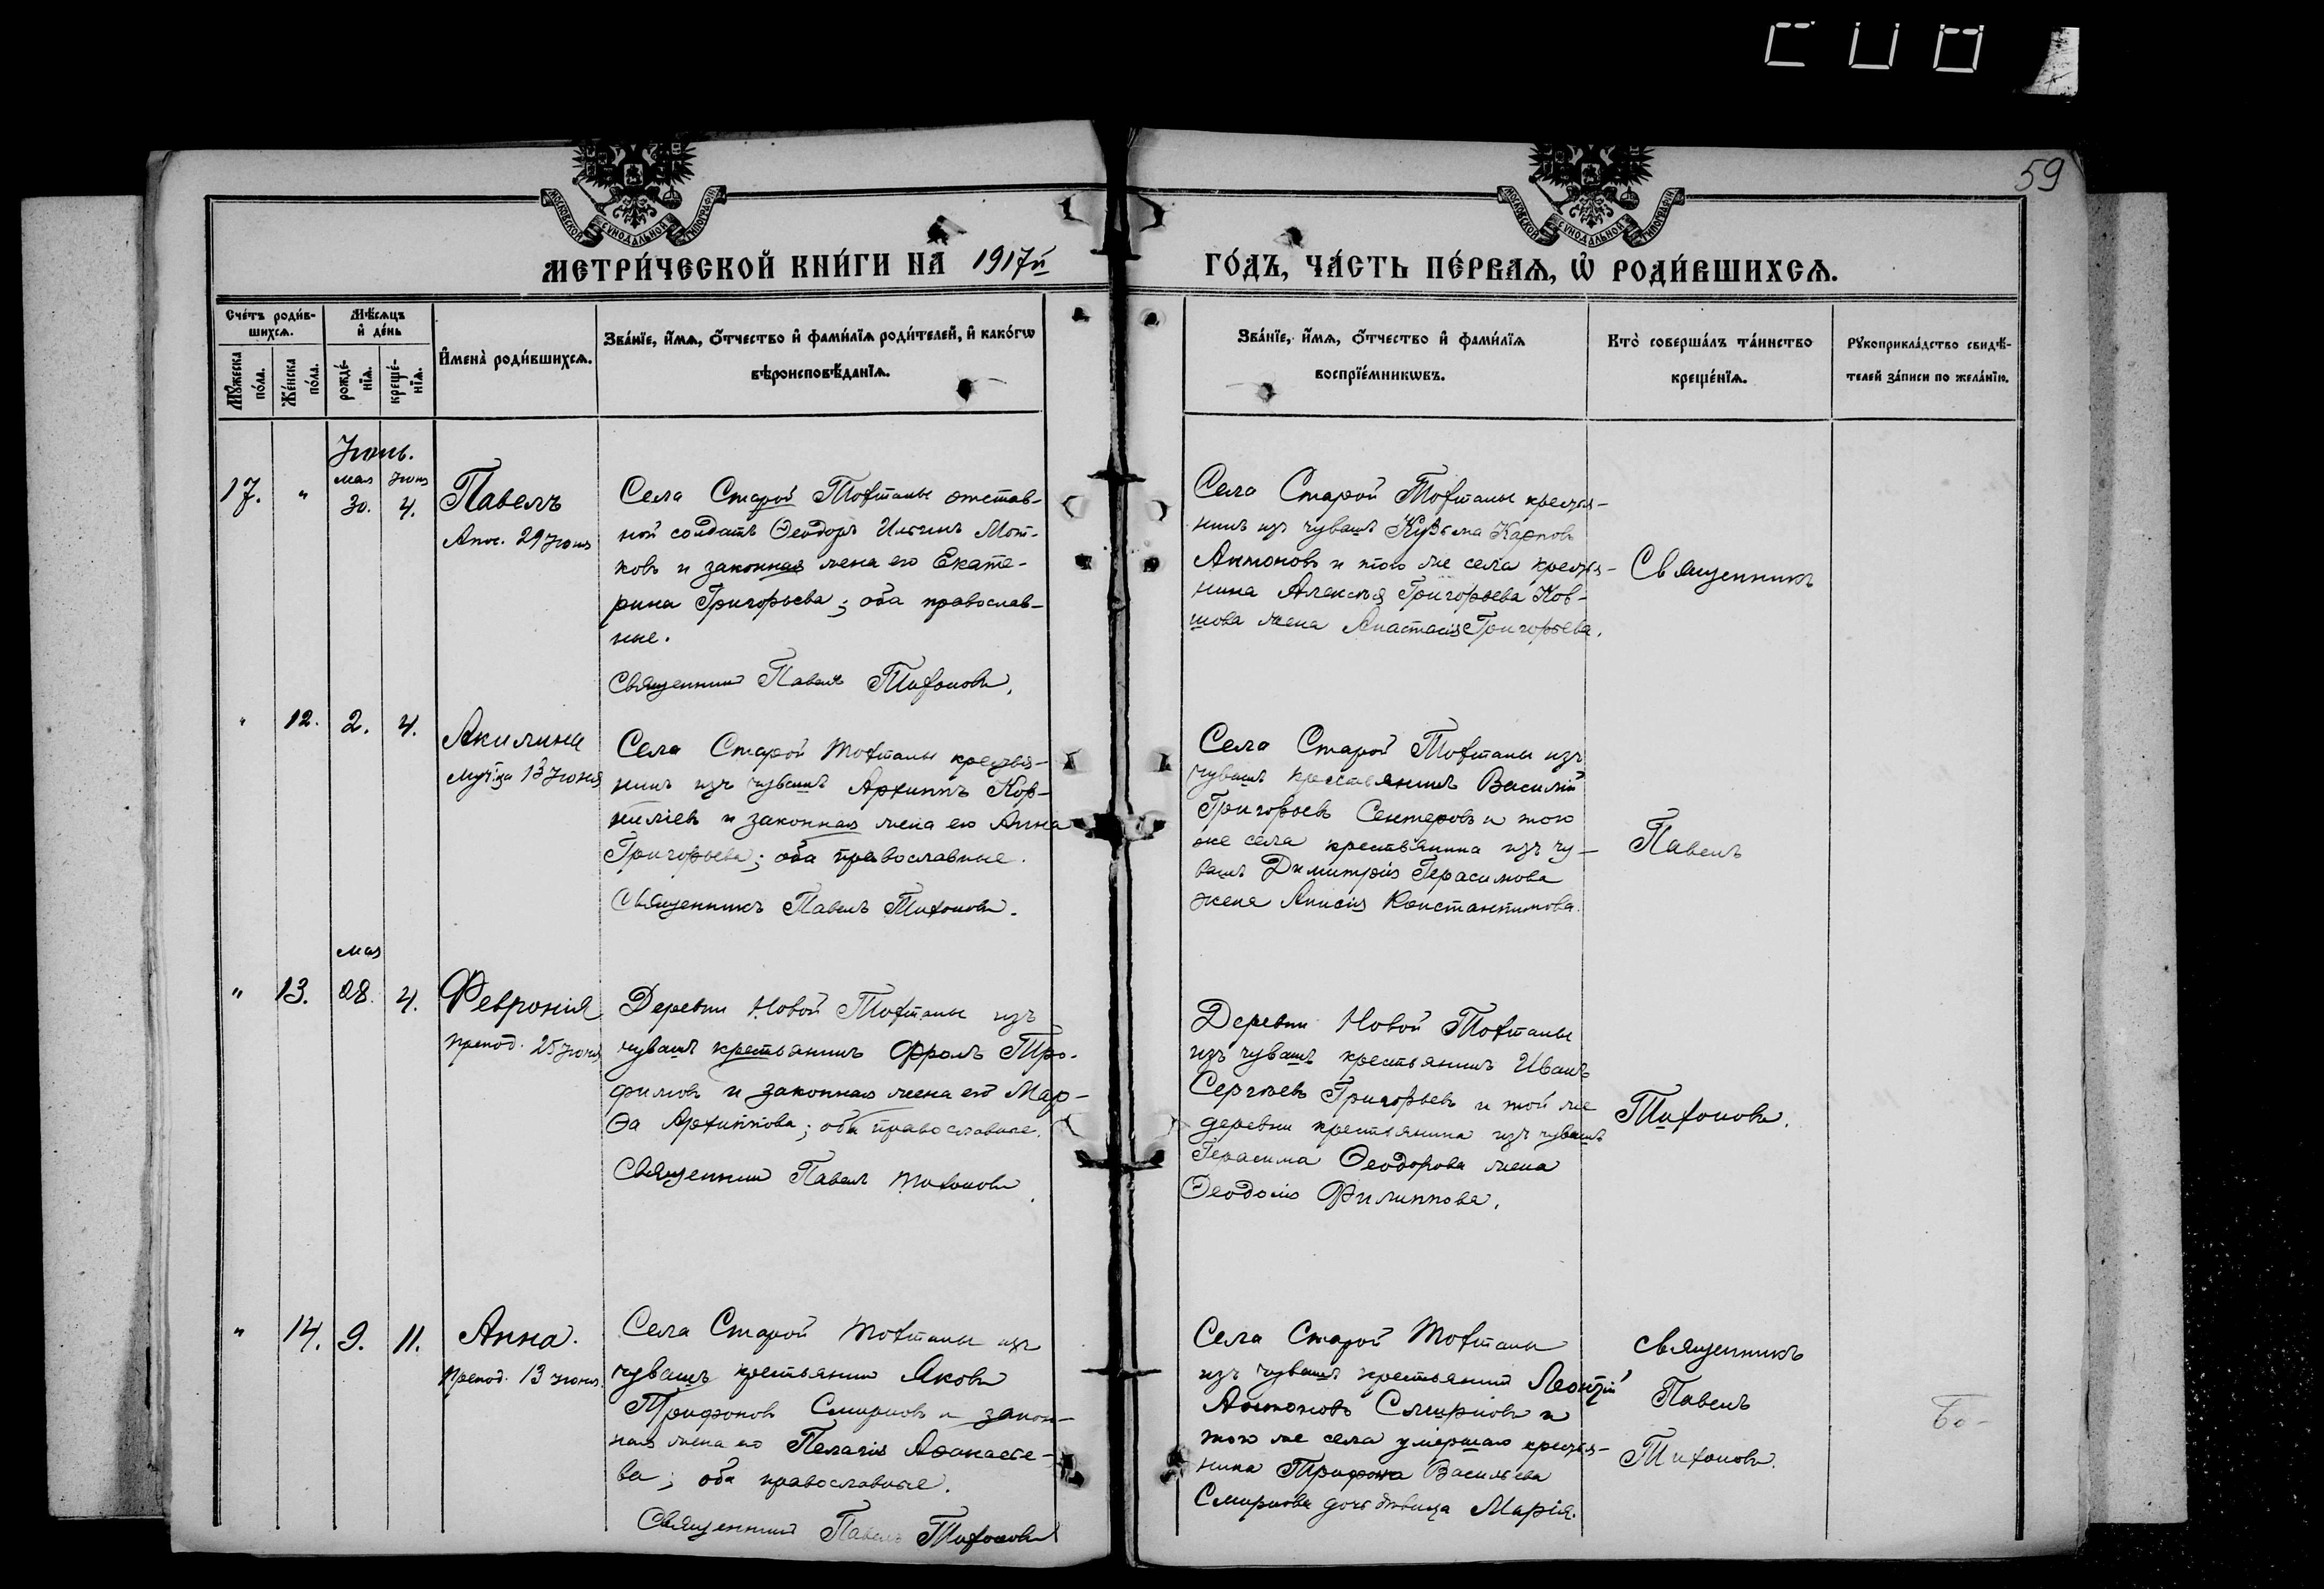 59
МОСКОВСКОЙ СУНОДАЛЬНОЙ ТИПОГРАФІИ
МОСКОВСКОЙ СУНОДАЛЬНОЙ ТИПОГРАФІИ
МЕТРИ́ЧЕСКОЙ КНИ́ГИ НА 1917й
ГО́ДЪ, ЧА́СТЬ ПЕ́РВАѦ, Ѡ РОДИ́ВШИХСѦ.
Сче́тъ роди́в-
шихсѧ.
Мѣ́сѧцъ
и де́нь
Мꙋжеска
по́ла.
Же́нска
по́ла.
рожде́-
нїѧ.
креще́-
нїѧ.
И҆мена̀ роди́вшихсѧ.
Зва́нїе, и҆́мѧ, ѻ҆́тчество и҆ фами́лїѧ роди́телей, и҆ како́гѡ
вѣроисповѣ́данїѧ.
Зва́нїе, и҆́мѧ, ѻ҆́тчество и҆ фами́лїѧ
воспрїе́мникѡвъ.
Кто̀ соверша́лъ та́инство
креще́нїѧ.
Рꙋкоприкла́дство свидѣ́-
телей за́писи по жела́нїю.
Іюнь.
мая Іюня
17. " 30. 4. Павелъ
Апос. 29 Іюня
Села Старой Тохталы отстав-
ной солдатъ Ѳеодоръ Ильинъ Мот-
ковъ и законная жена его Екате-
рина Григорьева; оба православ-
ные.
Священникъ Павелъ Тихоновъ.
Села Старой Тохталы крестья-
нинъ изъ чувашъ Кузьма Карповъ
Антоновъ и того же села крестья-
нина Алексѣя Григорьева Ков-
шова жена Анастасія Григорьева.
Священникъ
" 12. 2. 4. Акилина
муч-ца 13 Іюня
Села Старой Тохталы крестья-
нинъ изъ чувашъ Архиппъ Кор-
ниліевъ и законная жена его Анна
Григорьева; оба православные.
Священникъ Павелъ Тихоновъ.
Села Старой Тохталы изъ
чувашъ крестьянинъ Василій
Григорьевъ Сентеровъ и того
же села крестьянина изъ чу-
вашъ Димитрія Герасимова
жена Анисія Константинова.
Павелъ
мая
" 13. 28. 4. Февронія
препод. 25 Іюня
Деревни Новой Тохталы изъ
чувашъ крестьянинъ Фролъ Тро-
фимовъ и законная жена его Мар-
ѳа Архиппова; оба православные.
Священникъ Павелъ Тихоновъ.
Деревни Новой Тохталы
изъ чувашъ крестьянинъ Иванъ
Сергѣевъ Григорьевъ и той же
деревни крестьянина изъ чувашъ
Герасима Ѳеодорова жена
Ѳеодосія Филиппова.
Тихоновъ.
" 14. 9. 11. Анна.
препод. 13 Іюня.
Села Старой Тохталы изъ
чувашъ крестьянинъ Яковъ
Трифоновъ Смирновъ и закон-
ная жена его Пелагія Аѳанасье-
ва; оба православные.
Священникъ Павелъ Тихоновъ
Села Старой Тохталы
изъ чувашъ крестьянинъ Леонтій
Антоновъ Смирновъ и
того же села умершаго крестья-
нина Трифона Васильева
Смирнова дочь дѣвица Марія.
священникъ
Павелъ
Тихоновъ.